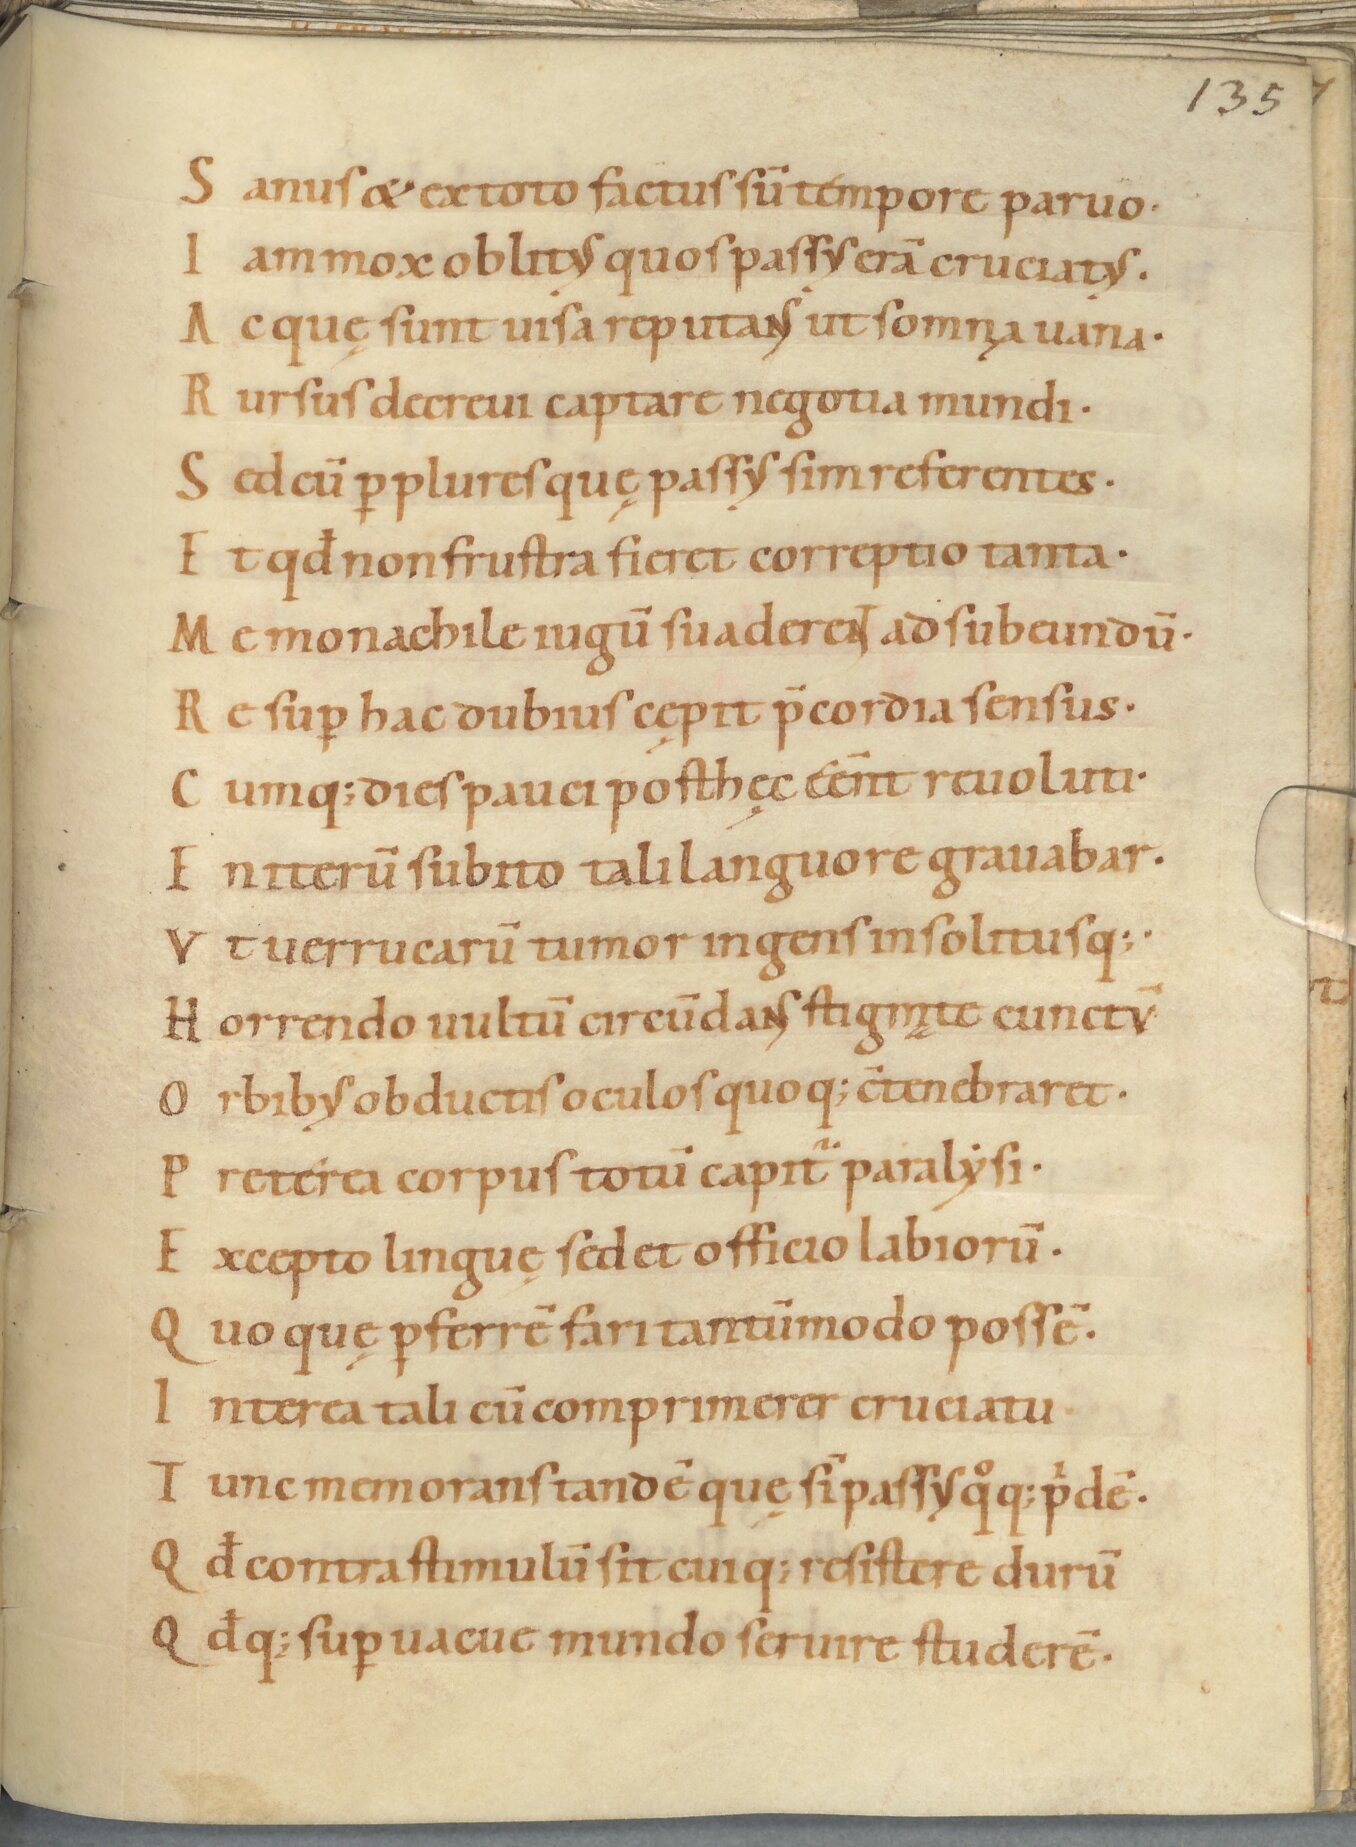 135
Sanus & ex toto factus sū tempore paruo·
Iam mox oblitꝰ quos passꝰ erā cruciatꝰ·
Ac quę sunt uisa reputans ut somnia uana·
Rursus decreui captare negotia mundi·
Sed cū ꝑ plures quę passꝰ sim referentes·
Et qđ non frustra fieret correptio tanta·
Me monachile iugū suaderent ad subeundū·
Re suꝑ hac dubius cępit p̄cordia sensus·
Cumq; dies pauci post hęc eēnt reuoluti·
En iterū subito tali languore grauabar·
Vt uerrucarū tumor ingens insolitusq;·
Horrendo uultū circūdans stigmate cunctū
Orbibꝰ obductis oculos quoq; c̄tenebraret·
Preterea corpus totū capit᷑ paralẏsi·
Excepto linguę sed et officio labiorū·
Quo quę ꝑferrē fari tantūmodo possē·
Interea tali cū comprimerer cruciatu·
Tunc memorans tandē quę sī passꝰ qͦq; pͥdē·
Qđ contra stimulū sit cuiq; resistere durū
Qđq; suꝑuacue mundo seruire studerē·